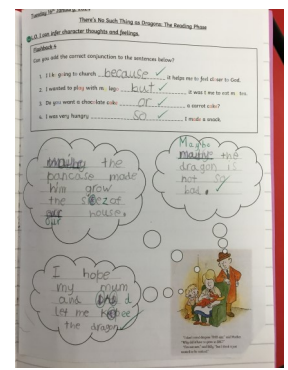 Tuesday 19th January 2021
There's No Such Thing as Dragons: The Reading Phase
L.O. I can infer character thoughts and feelings.
Flashback 4
Can you add the correct conjunction to the sentences below?
1. I like going to church because it helps me to feel closer to God.
2. I wanted to play with my lego but it was time to eat my tea.
3. Do you want a chocolate cake or a carrot cake?
4. I was very hungry so I made a snack.
the
pancase made
him grow
the size of
our house.
Maybe
the
dragon is
not so
bad.
I hope
my mum
and dad
let me keep
the dragon